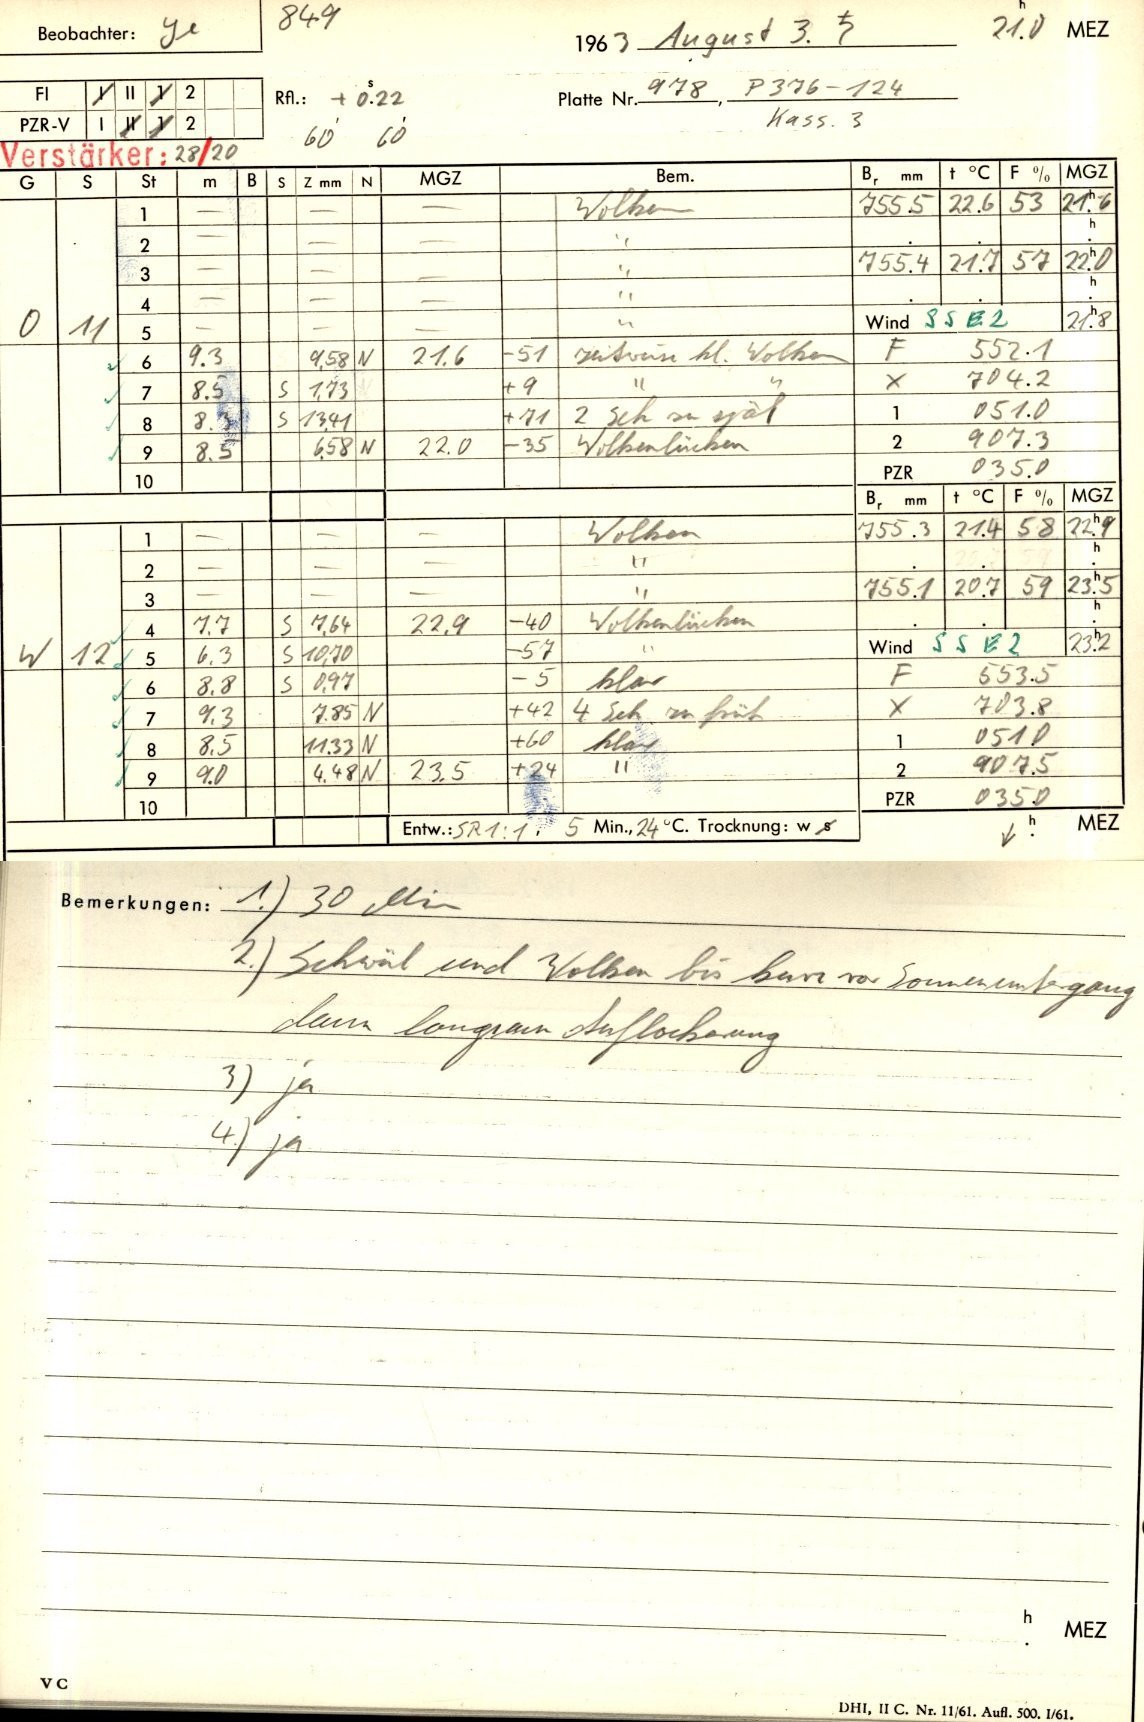 Beobachter: Ye 849 1963 August 3. ♄ 21.0 h MEZ
FI I II 1 2 Rfl.: + 0.22 s Platte Nr. 978, P 376-124
PZR-V I II 1 2 60 60 Kass. 3
Verstärker: 28/20
G S St m B S Z mm N MGZ Bem. Br mm t °C F % MGZ
1 — — — Wolken 755.5 22.6 53 21.6 h
2 — — — " . . h
3 — — — " 755.4 21.7 57 22.0 h
4 — — — " . . h
O 11 5 — — — " Wind SSE 2 21.8 h
6 9.3 9,58 N 21.6 -51 zeitweise kl. Wolken F 552.1
7 8.5 S 1,73 +9 " " X 704.2
8 8.3 S 13,41 +71 2 Sek zu spät 1 051.0
9 8.5 6,58 N 22.0 -35 Wolkenlücken 2 907.3
10 PZR 035.0
Br mm t °C F % MGZ
1 — — — Wolken 755.3 21.4 58 22.9 h
2 — — — " . . h
3 — — — " 755.1 20.7 59 23.5 h
4 7.7 S 7,64 22.9 -40 Wolkenlücken . . h
W 12 5 6.3 S 10,70 -57 " Wind SSE 2 23.2 h
6 8.8 S 0,97 -5 klar F 553.5
7 9.3 7.85 N +42 4 Sek zu früh X 703.8
8 8.5 11.33 N +60 klar 1 051.0
9 9.0 4.48 N 23.5 +24 " 2 907.5
10 PZR 035.0
Entw.: SR 1:1. 5 Min., 24 °C. Trocknung: w s h MEZ
Bemerkungen: 1.) 30 Min
2.) Schwül und Wolken bis kurz vor Sonnenuntergang
dann langsam Auflockerung
3) ja
4.) ja
h MEZ
V C
DHI, II C. Nr. 11/61. Aufl. 500. 1/61.